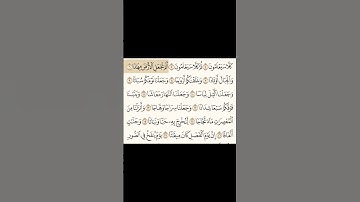 كَلَّا سَيَعْلَمُونَ ۝ ثُمَّ كَلَّا سَيَعْلَمُونَ ۝ أَلَمْ نَجْعَلِ ٱلْأَرْضَ مِهَٰدًا ۝
وَٱلْجِبَالَ أَوْتَادًا ۝ وَخَلَقْنَٰكُمْ أَزْوَٰجًا ۝ وَجَعَلْنَا نَوْمَكُمْ سُبَاتًا ۝
وَجَعَلْنَا ٱلَّيْلَ لِبَاسًا ۝ وَجَعَلْنَا ٱلنَّهَارَ مَعَاشًا ۝ وَبَنَيْنَا
فَوْقَكُمْ سَبْعًا شِدَادًا ۝ وَجَعَلْنَا سِرَاجًا وَهَّاجًا ۝ وَأَنزَلْنَا مِنَ
ٱلْمُعْصِرَٰتِ مَآءً ثَجَّاجًا ۝ لِّنُخْرِجَ بِهِۦ حَبًّا وَنَبَاتًا ۝ وَجَنَّٰتٍ
أَلْفَافًا ۝ إِنَّ يَوْمَ ٱلْفَصْلِ كَانَ مِيقَٰتًا ۝ يَوْمَ يُنفَخُ فِى ٱلصُّورِ